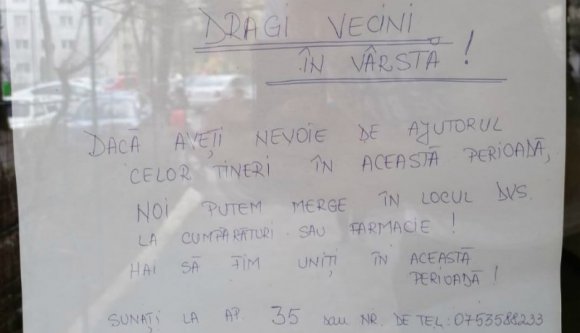 DRAGI VECINI
ÎN VÂRSTĂ!
DACĂ AVEȚI NEVOIE DE AJUTORUL
CELOR TINERI ÎN ACEASTĂ PERIOADĂ,
NOI PUTEM MERGE ÎN LOCUL DVS.
LA CUMPĂRĂTURI SAU FARMACIE!
HAI SĂ FIM UNIȚI ÎN ACEASTĂ
PERIOADĂ!
SUNAȚI LA AP. 35 sau NR. DE TEL: 0753589233